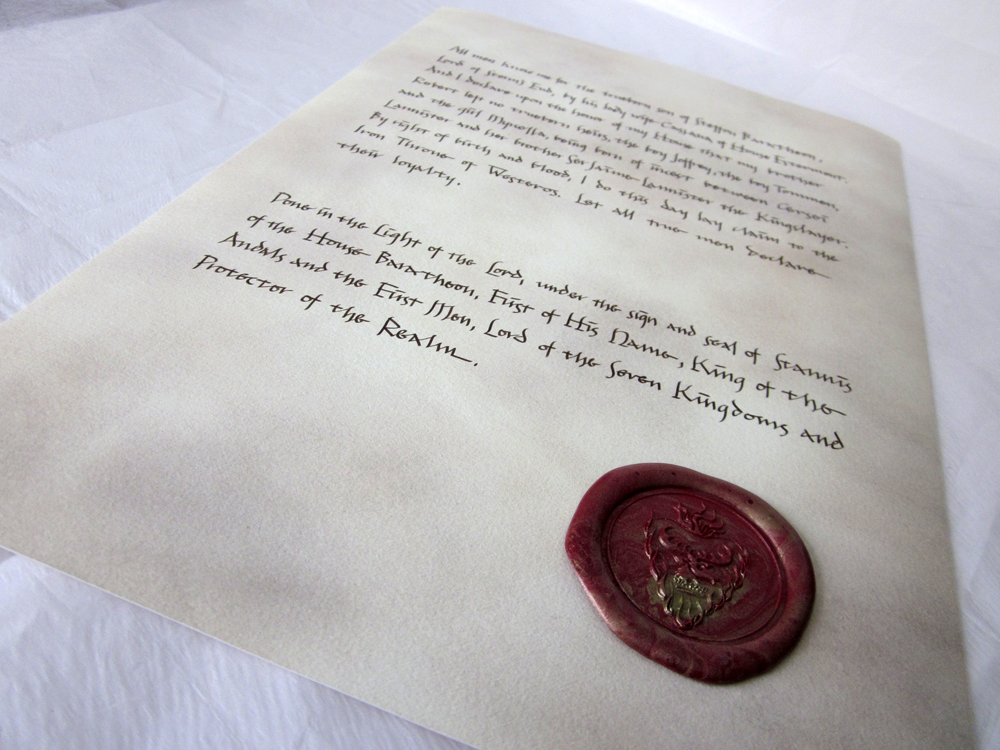 All men know me for the trueborn son of Steffon Baratheon,
Lord of Storm's End, by his lady wife Cassana of House Estermont.
And I declare upon the honor of my House that my brother
Robert left no trueborn heirs, the boy Joffrey, the boy Tommen,
and the girl Myrcella, being born of incest between Cersei
Lannister and her brother Ser Jaime Lannister the Kingslayer.
By right of birth and blood, I do this day lay claim to the
Iron Throne of Westeros. Let all true men declare
their loyalty.
Done in the Light of the Lord, under the sign and seal of Stannis
of the House Baratheon, First of His Name, King of the
Andals and the First Men, Lord of the Seven Kingdoms and
Protector of the Realm.